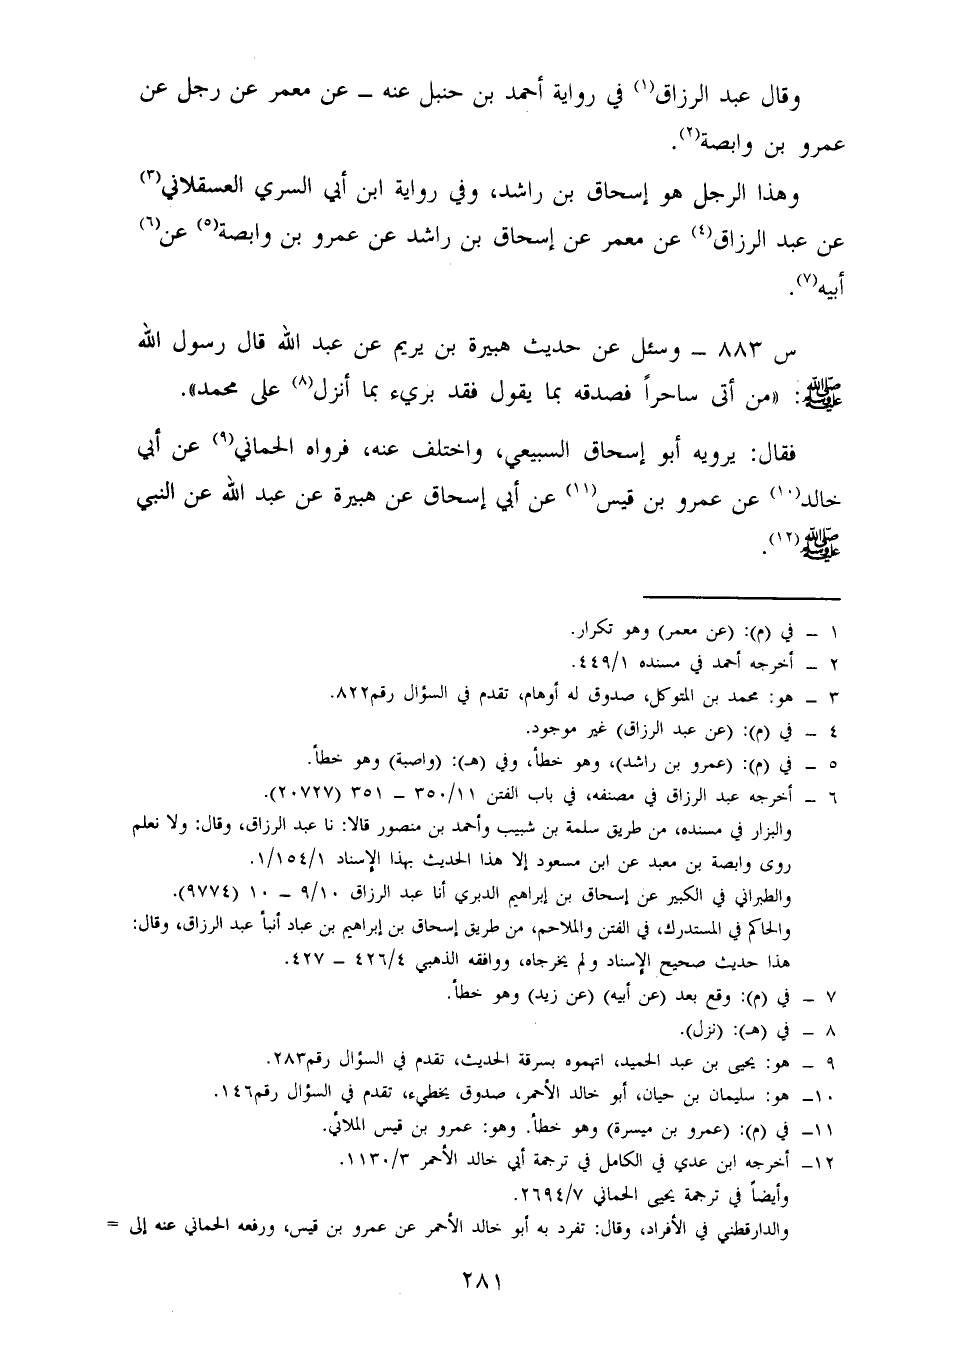 وقال عبد الرزاق(١) في رواية أحمد بن حنبل عنه ــ عن معمر عن رجل عن
عمرو بن وابصة(٢).
وهذا الرجل هو إسحاق بن راشد، وفي رواية ابن أبي السري العسقلاني(٣)
عن عبد الرزاق(٤) عن معمر عن إسحاق بن راشد عن عمرو بن وابصة(٥) عن(٦)
أبيه(٧).
س ٨٨٣ ــ وسئل عن حديث هبيرة بن يريم عن عبد الله قال رسول الله
ﷺ: «من أتى ساحراً فصدقه بما يقول فقد بريء بما أنزل(٨) على محمد».
فقال: يرويه أبو إسحاق السبيعي، واختلف عنه، فرواه الحماني(٩) عن أبي
خالد(١٠) عن عمرو بن قيس(١١) عن أبي إسحاق عن هبيرة عن عبد الله عن النبي
ﷺ(١٢).
١ ــ في (م): (عن معمر) وهو تكرار.
٢ ــ أخرجه أحمد في مسنده ٤٤٩/١.
٣ ــ هو: محمد بن المتوكل، صدوق له أوهام، تقدم في السؤال رقم٨٢٢.
٤ ــ في (م): (عن عبد الرزاق) غير موجود.
٥ ــ في (م): (عمرو بن راشد)، وهو خطأ، وفي (هـ): (واصبة) وهو خطأ.
٦ ــ أخرجه عبد الرزاق في مصنفه، في باب الفتن ٣٥٠/١١ ــ ٣٥١ (٢٠٧٢٧).
والبزار في مسنده، من طريق سلمة بن شبيب وأحمد بن منصور قالا: نا عبد الرزاق، وقال: ولا نعلم
روى وابصة بن معبد عن ابن مسعود إلا هذا الحديث بهذا الإسناد ١/١٥٤/١.
والطبراني في الكبير عن إسحاق بن إبراهيم الدبري أنا عبد الرزاق ٩/١٠ ــ ١٠ (٩٧٧٤).
والحاكم في المستدرك، في الفتن والملاحم، من طريق إسحاق بن إبراهيم بن عباد أنبأ عبد الرزاق، وقال:
هذا حديث صحيح الإسناد ولم يخرجاه، ووافقه الذهبي ٤٢٦/٤ ــ ٤٢٧.
٧ ــ في (م): وقع بعد (عن أبيه) (عن زيد) وهو خطأ.
٨ ــ في (هـ): (نزل).
٩ ــ هو: يحيى بن عبد الحميد، اتهموه بسرقة الحديث، تقدم في السؤال رقم٢٨٣.
١٠ــ هو: سليمان بن حيان، أبو خالد الأحمر، صدوق يخطيء، تقدم في السؤال رقم١٤٦.
١١ــ في (م): (عمرو بن ميسرة) وهو خطأ. وهو: عمرو بن قيس الملائي.
١٢ــ أخرجه ابن عدي في الكامل في ترجمة أبي خالد الأحمر ١١٣٠/٣.
وأيضاً في ترجمة يحيى الحماني ٢٦٩٤/٧.
والدارقطني في الأفراد، وقال: تفرد به أبو خالد الأحمر عن عمرو بن قيس، ورفعه الحماني عنه إلى =
٢٨١